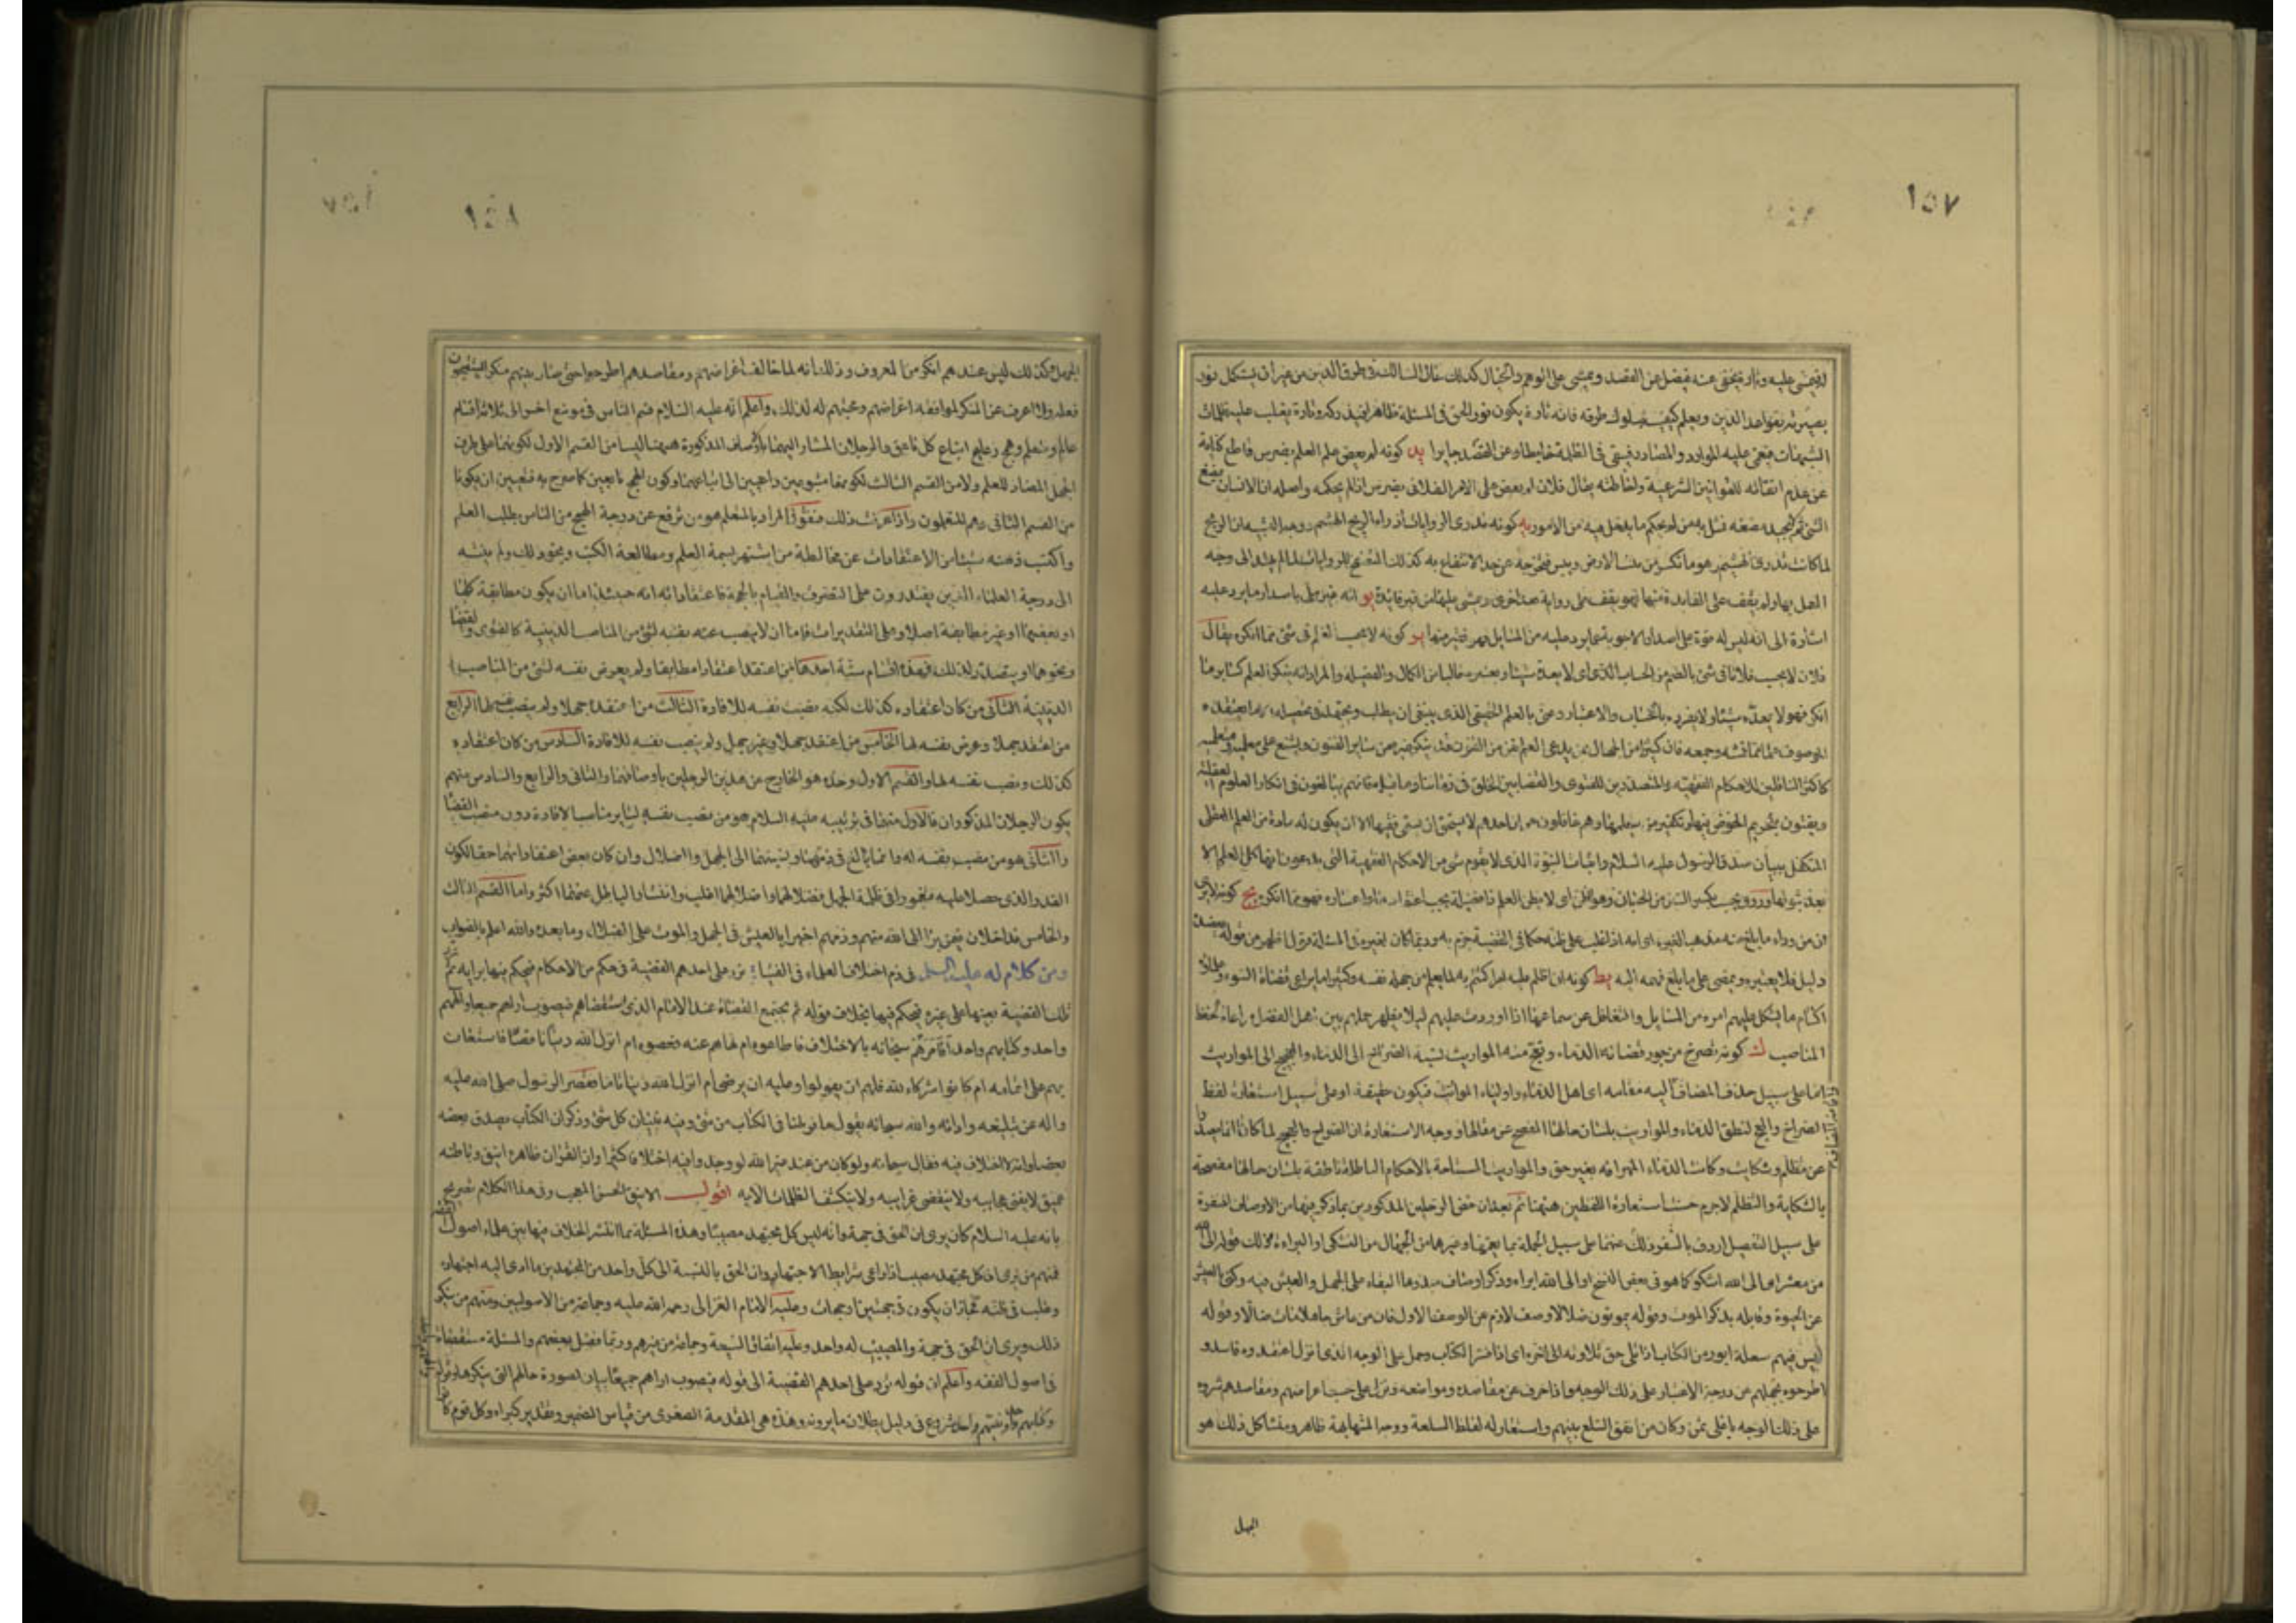 ١٥٧
فيمشى عليه وتارة يخفى عنه فيضل عن القصد ويمشى على الوهم والخيال كذلك حال السالك فى طرق الدين من غير ان يستكمل نور
بصيرته بقواعد الدين ويعلم كيفية سلوك طرقه فانه تارة يكون نور الحق فى المسئلة ظاهرا فيدركه وتارة يغلب عليه ظلمات
الشبهات فيعمى عليه الموارد والمصادر فيبقى فى الظلمة خابطا وعن القصد جايرا يد كونه لم يعض على العلم بضرس قاطع كناية
عن عدم اتقانه للقوانين الشرعية والحاطته يقال فلان لم يعض على الامر الفلانى بضرس اذا لم يحكمه واصله ان الانسان يمضغ
الشئ ثم لا يجيد مضغه فمثل به من لم يحكم ما يدخل فيه من الامور يه كونه يذرى الروايات اذراء الريح الهشيم ووجه الشبه ان الريح
لما كانت تذرى الهشيم وهو ما تكسر من نبت الارض ويبس فتخرجه عن حد الانتفاع به كذلك المتصفح للروايات لما لم يهتد الى وجه
العمل بها ولم يقف على الفايدة منها فهو يقف على رواية بعد اخرى ويمشى عليها من غير فايدة يو انه غير ملى باصدار ما يرد عليه
اشارة الى انه ليس له قوة على اصدار الاجوبة عما يرد عليه من المسايل فهو فقير منها يز كونه لا يحسب العلم فى شئ مما انكره يقال
فلان لا يحسب فلانا فى شئ بالضم من الحساب الذى اى لا يعده شيئا ويعتبره خاليا من الكمال والفضيلة والمراد انه ينكر العلم كساير ما
انكر فهو لا يعده شيئا ولا يفرده بالحساب والاعتبار وعنى بالعلم الحقيقى الذى ينبغى ان يطلب ويجتهد فى تحصيله لا ما يعتقده
الموصوف علما مما قمشه وجمعه فان كثيرا من الجهال ممن يدعى العلم بفن من الفنون قد ينكر غيره من ساير الفنون ويشنع على معلمه ومتعلمه
كاكثر الناقلين للاحكام الفقهية والمتصدرين للفتوى والقضا بين الخلق فى زماننا وما قبله فانهم يبالغون فى انكار العلوم العقلية
ويفتون بتحريم الخوض فيها وتكفير من يتعلمها وهم غافلون عن ان احدهم لا يستحق ان يسمى فقيها الا ان يكون له مادة من العلم العقلى
المتكفل ببيان صدق الرسول عليه السلام واثبات النبوة الذى لا يقوم شئ من الاحكام الفقهية التى يدعون انها كل العلم الا
بعد ثبوتها وروى يحسب بكسر السين من الحسبان وهو الظن اى لا يظن العلم فضيلة يجب اعتقادها واعتباره فهو مما انكره يح كونه لا يرى
ان من وراء ما بلغ منه مذهبا لغيره اى انه اذا غلب على ظنه حكما فى القضية جزم به وربما كان لغيره فى المسئلة قول اظهر من قوله يعضده
دليل فلا يعتبره ويمضى على ما بلغ فهمه اليه يط كونه ان اظلم عليه امر اكتتم به لما يعلم من جهل نفسه وكثيرا ما يراعى قضاة السوء وعلماء
اكتتام ما يشكل عليهم امره من المسايل والتغافل عن سماعها اذا اوردت عليهم ليلا يظهر جهلهم بين اهل الفضل مراعاة لحفظ
المناصب ك كونه تصرخ من جور قضائه الدماء وتعج منه المواريث نسبة الصراخ الى الدماء والعجيج الى المواريث
اما على سبيل حذف المضاف واقامة المضاف اليه مقامه اى اهل الدماء واولياء المواريث فيكون حقيقة او على سبيل استعارة لفظ
الصراخ والعج لنطق الدماء والمواريث بلسان حالها المفصح عن مقالها ووجه الاستعارة ان الصراخ والعجيج لما كانا انما يصدران
عن تظلم وشكاية وكانت الدماء المهراقة بغير حق والمواريث المستباحة بالاحكام الباطلة ناطقة بلسان حالها مفصحة
بالشكاية والتظلم لاجرم حسنت استعارة اللفظين هيهنا ثم بعد ان خص الرجلين المذكورين بما ذكر فيهما من الاوصاف المنفرة
على سبيل التفصيل اردف بالتنفير عنهما على سبيل الجملة بما يعمهما وغيرهما من الجهال من التشكى والبراءة وذلك قوله الى الله
من معشر اى الى الله اشكو كما هو فى بعض النسخ او الى الله ابراء وذكر اوصاف مبدءها البقاء على الجهل والعيش فيه وكنى بالعيش
عن الحيوة وقابله بذكر الموت وقوله يموتون ضلالا وصف لازم عن الوصف الاول فان من عاش جاهلا مات ضالا وقوله
ليس فيهم سلعة ابور من الكتاب اذا تلى حق تلاوته الى اخره اى اذا فسر الكتاب وحمل على الوجه الذى انزل اعتقدوه فاسدا و
اطرحوه بجهلهم عن درجة الاعتبار على ذلك الوجه واذا حرف عن مقاصده ومواضعه ونزل على حسب اغراضهم ومقاصدهم شروه
على ذلك الوجه باغلى ثمن وكان من انفق السلع بينهم واستعار له لفظ السلعة ووجه المشابهة ظاهر ومنشا كل ذلك هو
الجهل
١٥٨
الجهل وكذلك ليس عندهم انكر من المعروف وذلك انه لما خالف اغراضهم ومقاصدهم اطرحوه حتى صار بينهم منكرا يستقبحون
فعله ولا اعرف عن المنكر لموافقة اغراضهم ومحبتهم له لذلك واعلم انه عليه السلام قسم الناس فى موضع اخر الى ثلاثة اقسام
عالم ومتعلم وهمج رعاع اتباع كل ناعق والرجلان المشار اليهما بالاوصاف المذكورة هيهنا ليسا من القسم الاول لكونهما على طرف
الجهل المضاد للعلم ولا من القسم الثالث لكونهما متبوعين داعيين الى اتباعهما وكون الهمج تابعين كما صرح به فتعين ان يكونا
من القسم الثانى وهم المتعلمون واذا عرفت ذلك فنقول المراد بالمتعلم هو من ترفع عن درجة الهمج من الناس بطلب العلم
واكتسب ذهنه شيئا من الاعتقادات عن مخالطة من اشتهر بسمة العلم ومطالعة الكتب ونحو ذلك ولم ينته
الى درجة العلماء الذين يقتدرون على التصرف والقيام بالحجة فاعتقاداته انه حينئذ اما ان يكون مطابقة كلها
او بعضها او غير مطابقة اصلا وعلى التقديرات فاما ان لا ينصب نفسه لشئ من المناصب الدينية كالفتوى والقضا
ونحوهما او يتصدى لذلك فهذه اقسام ستة احدها من اعتقد اعتقادا مطابقا ولم يعرض نفسه لشئ من المناصب
الدينية الثانى من كان اعتقاده كذلك لكنه نصب نفسه للافادة الثالث من اعتقد جهلا ولم ينصب نفسه لها الرابع
من اعتقد جهلا وعرض نفسه لها الخامس من اعتقد جهلا وغير جهل ولم ينصب نفسه للافادة السادس من كان اعتقاده
كذلك ونصب نفسه لها والقسم الاول وحده هو الخارج عن هذين الرجلين باوصافهما والثانى والرابع والسادس منهم
يكون الرجلان المذكوران فالاول منهما فى ترتيبه عليه السلام هو من نصب نفسه لساير مناصب الافادة دون منصب القضا
والثانى هو من نصب نفسه له وانما بالغ فى ذمهما ونسبتهما الى الجهل والضلال وان كان بعض اعتقاداتهما حقا لكون
القدر الذى حصلا عليه مغمورا فى ظلمة الجهل فضلالهما واضلالهما اغلب وانتشار الباطل عنهما اكثر واما القسم الثالث
والخامس فداخلان فيمن تبرا الى الله منهم وذمهم اخيرا بالعيش فى الجهل والموت على الضلال وما بعده والله اعلم بالصواب
ومن كلام له عليه السلم فى ذم اختلاف العلماء فى الفتيا: ترد على احدهم القضية فى حكم من الاحكام فيحكم فيها برايه ثم ترد
تلك القضية بعينها على غيره فيحكم فيها بخلاف قوله ثم يجتمع القضاة عند الامام الذى استقضاهم فيصوب اراءهم جميعا والههم
واحد وكتابهم واحد افامرهم سبحانه بالاختلاف فاطاعوه ام نهاهم عنه فعصوه ام انزل الله دينا ناقصا فاستعان
بهم على اتمامه ام كانوا شركاء لله فلهم ان يقولوا وعليه ان يرضى ام انزل الله دينا تاما فقصر الرسول صلى الله عليه
واله عن تبليغه وادائه والله سبحانه يقول ما فرطنا فى الكتاب من شئ وفيه تبيان كل شئ وذكر ان الكتاب يصدق بعضه
بعضا وانه لا اختلاف فيه فقال سبحانه ولو كان من عند غير الله لوجدوا فيه اختلافا كثيرا وان القران ظاهره انيق وباطنه
عميق لا يفنى عجايبه ولا ينقضى غرايبه ولا ينكشف الظلمات الا به اقول الانيق الحسن المعجب وفى هذا الكلام تصريح
بانه عليه السلام كان يرى ان الحق فى جهة وانه ليس كل مجتهد مصيبا وهذه المسئلة مما انتشر الخلاف فيها بين علماء اصول الفقه
فمنهم من يرى ان كل مجتهد مصيب اذا راعى شرايط الاجتهاد وان الحق بالنسبة الى كل واحد من المجتهدين ما ادى اليه اجتهاده
وغلب فى ظنه فجاز ان يكون فى جهتين او جهات وعليه الامام الغزالى رحمه الله عليه وجماعة من الاصوليين ومنهم من ينكر
ذلك ويرى ان الحق فى جهة والمصيب له واحد وعليه اتفاق الشيعة وجماعة من غيرهم وربما فصل بعضهم والمسئلة مستقصاة
فى اصول الفقه واعلم ان قوله ترد على احدهم القضية الى قوله فيصوب اراهم جميعا بيان لصورة حالهم التى ينكرها وقوله
وكتابهم واحد ونبيهم واحد شروع فى دليل بطلان ما يرونه وهذه هى المقدمة الصغرى من قياس الضمير وتقدير كبراه وكل قوم كان